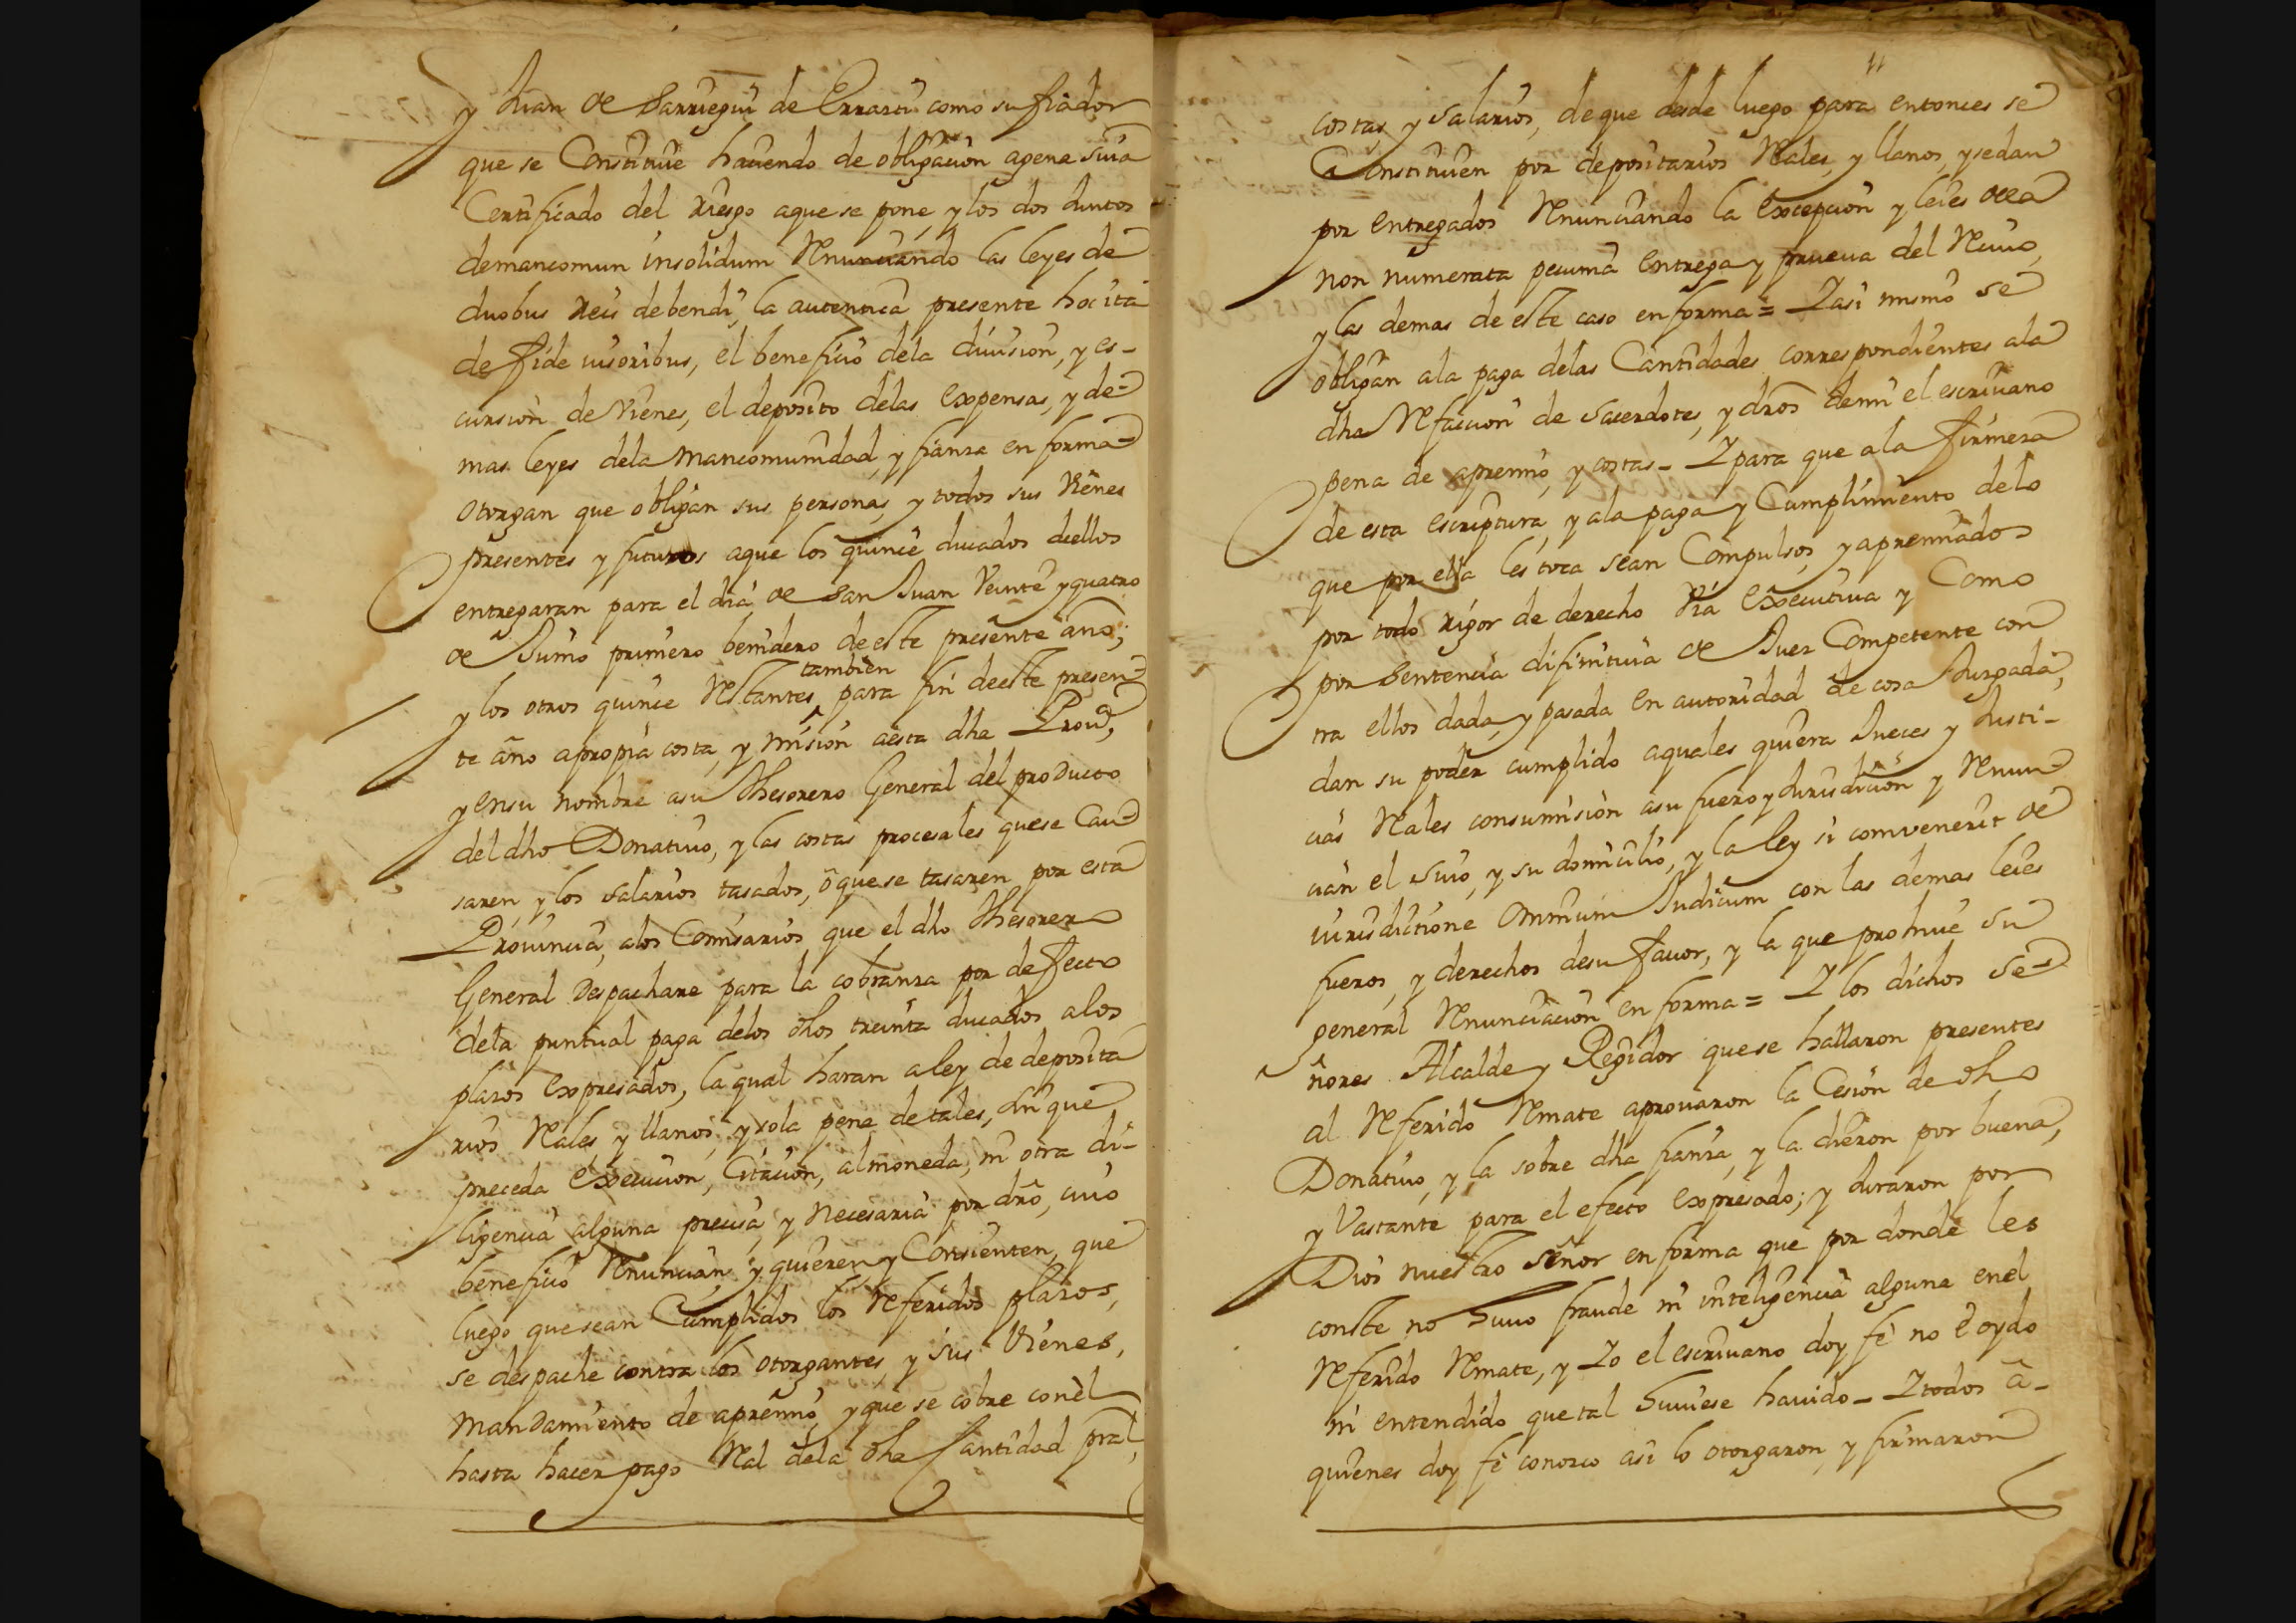 y Juan de Sarriegui de Errarti como su fiador
que se Constituie haciendo de obligacion agena suia
Certificado del riesgo aque se pone, y los dos Juntos
demancomun insolidum Renunciando las leyes de
duobus Reis debendi, la autentica presente hoc ita
de fide iusoribus, el beneficio dela diuision, y es-
cursion de Vienes, el deposito delas expensas, y de-
mas leyes dela Mancomunidad, y fianza en forma
otorgan que obligan sus personas, y todos sus Vienes
presentes y futuros aque los quince ducados dellos
entregaran para el dia de San Juan Veinte y quatro
de Junio primero benidero deeste presente año;
y los otros quince Restantes también para fin deeste presen-
te año apropia costa, y mision aesta dha Prouª,
y ensu nombre asu Thesorero General del producto
del dho Donatiuo, y las costas procesales quese Cau-
saren, y los salarios tasados, ô quese tasaren por esta
Prouincia, alos Comisarios que el dho Thesorero
General Despachare para la cobranza por defecto
dela puntual paga delos dhos treinta ducados alos
plazos expresados, la qual haran a ley de deposita
rios Rales, y llanos, y sola pena de tales, sin que
preceda execucion, Citacion, almoneda, ni otra di-
ligencia alguna precisa, y necesaria por dro, cuio
beneficio Renuncian, y quieren y Consienten, que
luego quesean Cumplidos los Referidos plazos,
se despache contra los otorgantes, y sus Vienes,
Mandamiento de apremio, y que se cobre conèl
hasta hacer pago Ral dela dha Cantidad pral,
11
costas, y Salarios, deque desde luego para entonces se
Constituien por depositarios Rales, y llanos, y sedan
por entregados Renunciando la excepcion y leies dela
non numerata pecunia entrega y prueua del Reciuo,
y las demas de este caso en forma = Y asi mismo se
obligan ala paga delas Cantidades correspondientes ala
dha Refaccion de Sacerdotes, y dros demi el escriuano
pena de apremio, y costas - Y para que ala firmeza
de esta escriptura, y ala paga y Cumplimiento delo
que por ella les toca sean Compulsos, y apremiados
por todo rigor de derecho Via executiua y Como
por Sentencia difinitiua de Juez Competente con
tra ellos dada, y pasada en autoridad de cosa Jurgada,
dan su poder cumplido aquales quiera Jueces y Justi-
cias Rales consumision asu fuero y Jurisdicion y Renun-
cian el suio, y su domicilio, y la ley si comvenerit de
iurisdictione omnium Judicum con las demas leies
fueros, y derechos desu fauor, y la que prohiue su
general Renunciacion en forma = Y los dichos Se-
ñores Alcalde y Regidor quese hallaron presentes
al Referido Remate aprouaron la Cesion de dho
Donatiuo, y la sobre dha fianza, y la dieron por buena,
y Vastante para el efecto expresado; y Juraron por
Dios nuestro Señor en forma que por donde les
conste no huuo fraude ni inteligencia alguna enel
Referido Remate, y Yo el escriuano doy fe no e oydo
ni entendido que tal huuiese hauido - Y todos â-
quienes doy fe conozco asi lo otorgaron, y firmaron